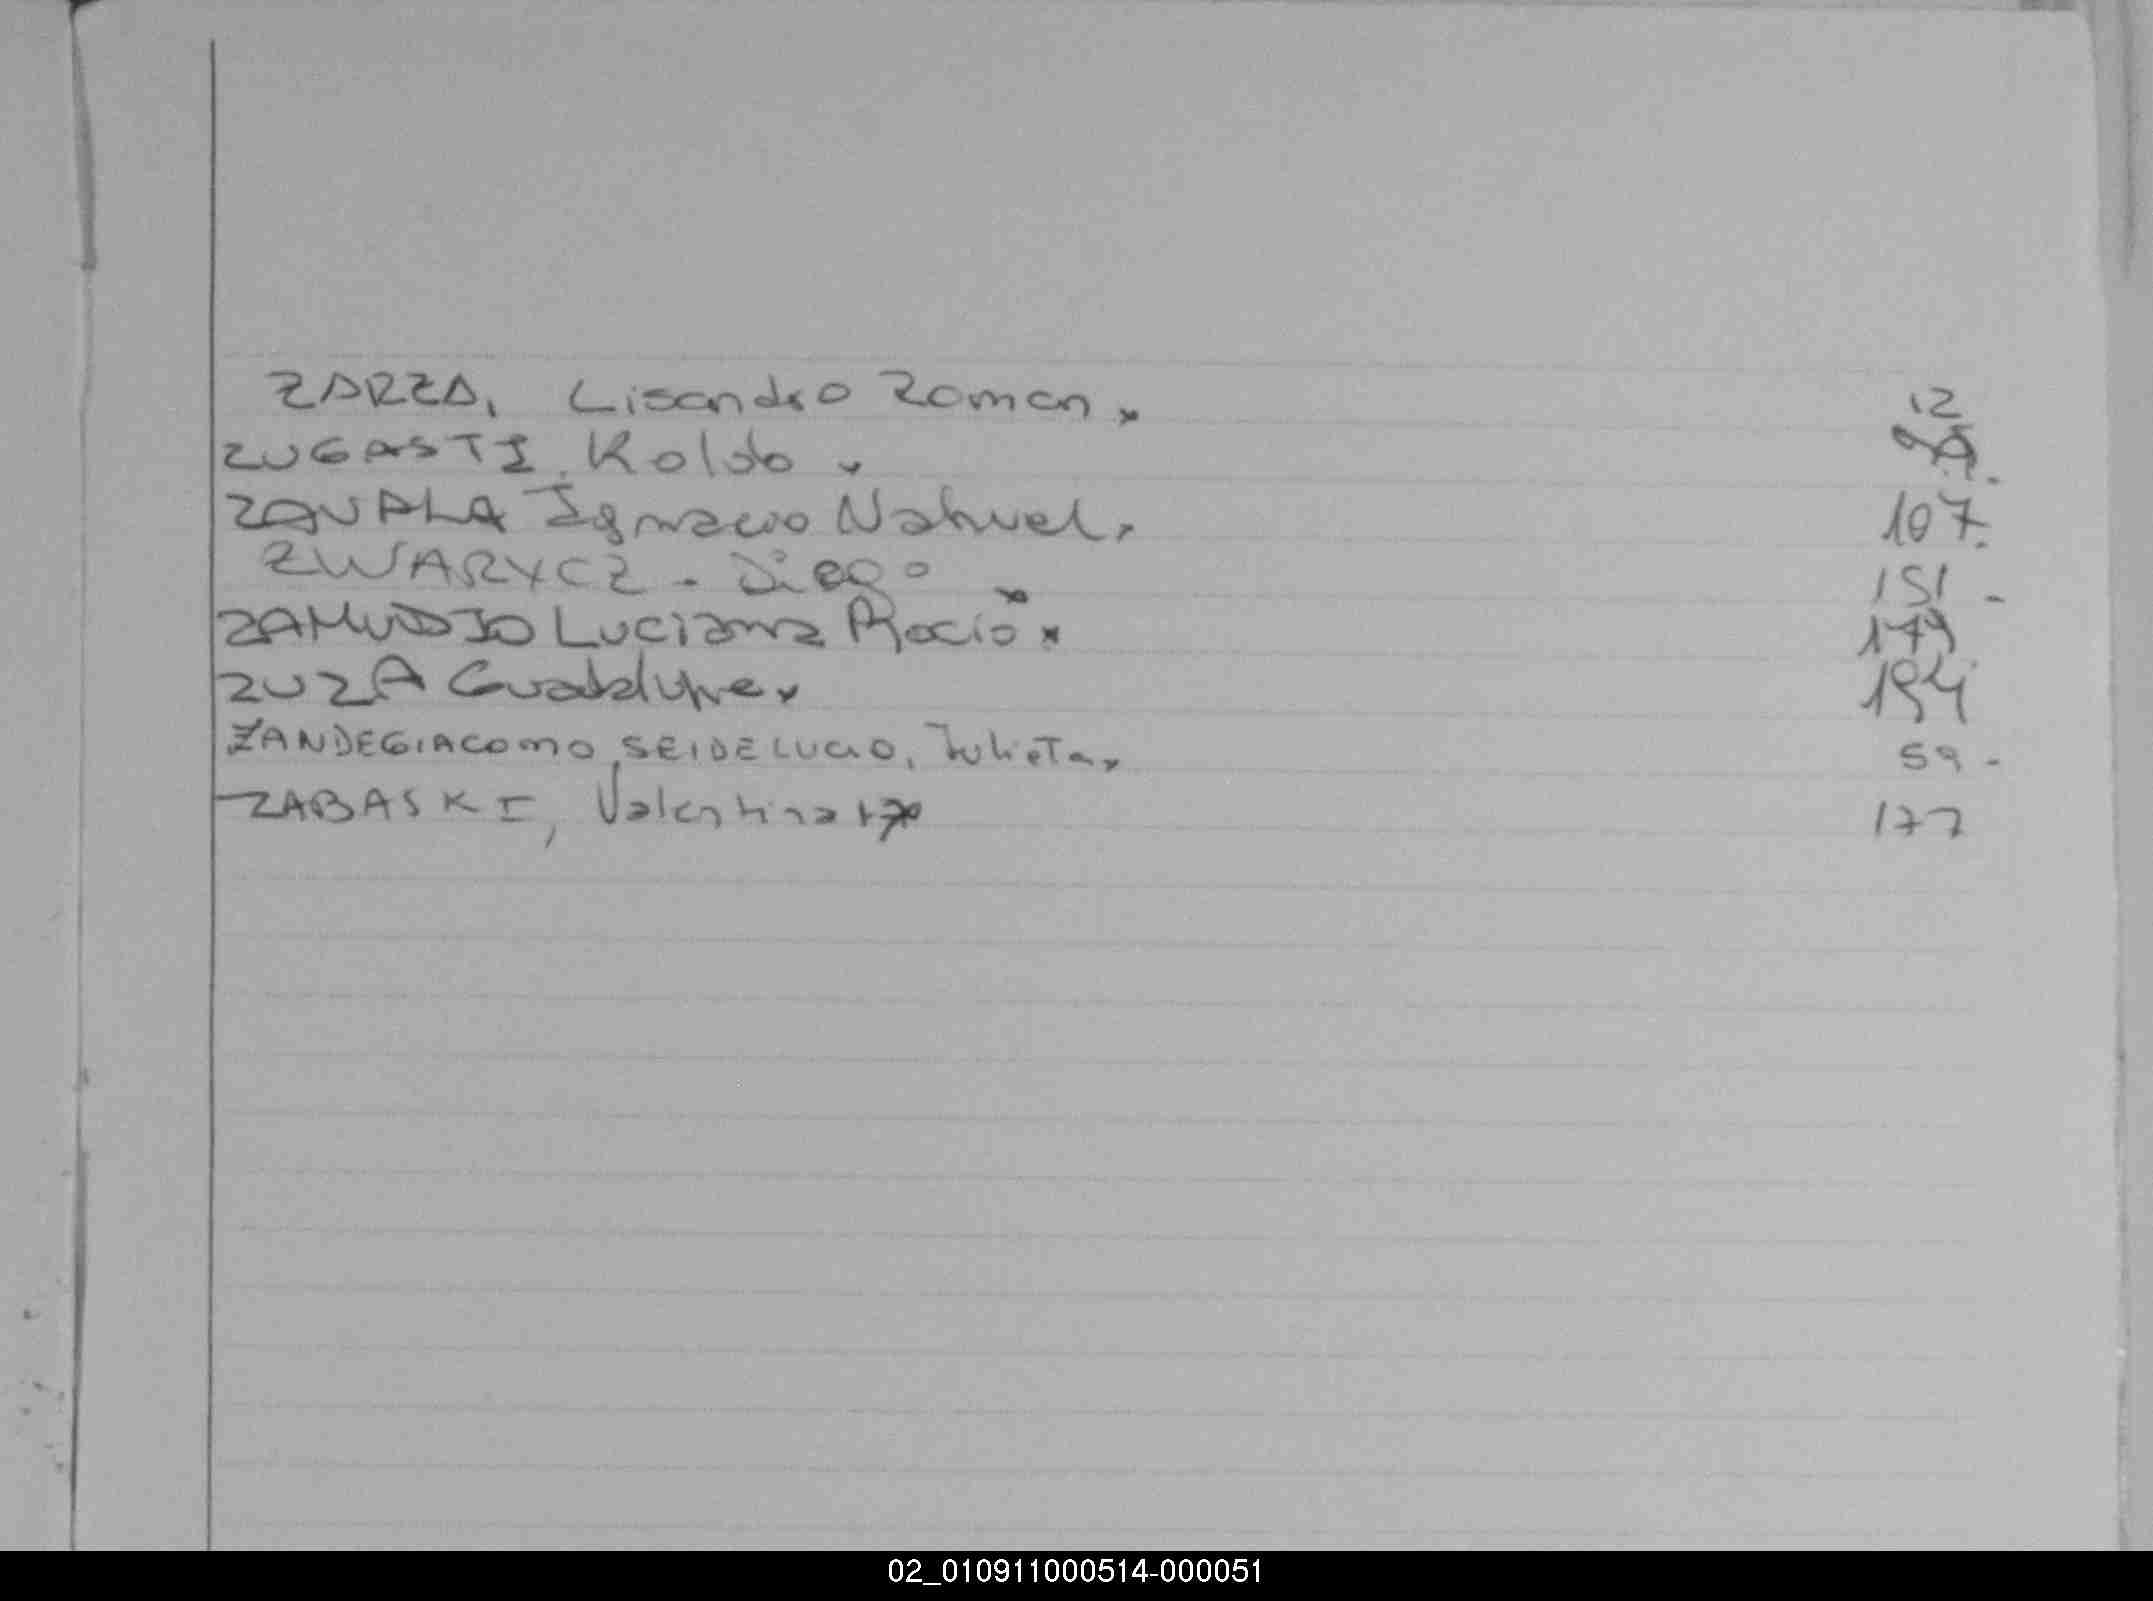 ZARZA, Lisandro Roman x 12
ZUGASTI, Koldo x
ZAVALA Ignacio Nahuel x 107.
ZWARYCZ - Diego x 151 -
ZAMUDIO Luciana Rocio x 179
ZUZA Guadalupe x 194
ZANDEGIACOMO SEIDELUCIO, Julieta x 59 -
ZABASKI, Valentina 177
02_010911000514-000051